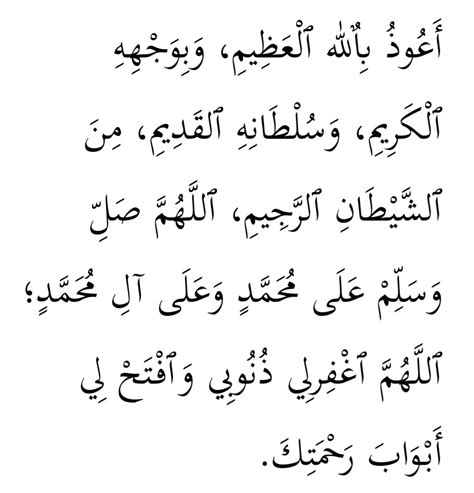 أَعُوذُ بِٱللّٰه ٱلْعَظِيمِ، وَبِوَجْهِهِ
ٱلْكَرِيمِ، وَسُلْطَانِهِ ٱلقَدِيمِ، مِنَ
ٱلشَّيْطَانِ ٱلرَّجِيمِ، ٱللَّهُمَّ صَلِّ
وَسَلِّمْ عَلَى مُحَمَّدٍ وَعَلَى آلِ مُحَمَّدٍ؛
ٱللَّهُمَّ ٱغْفِرلِي ذُنُوبِي وَٱفْتَحْ لِي
أَبْوَابَ رَحْمَتِكَ.